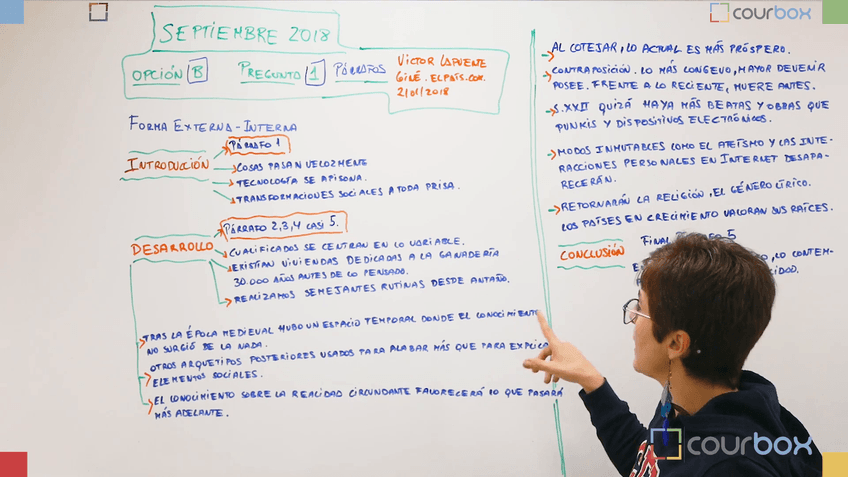 SEPTIEMBRE 2018
OPCIÓN B PREGUNTA 1 PÁRRAFOS
VICTOR LAPUENTE
GINÉ. ELPAÍS.COM.
2/01/2018
FORMA EXTERNA-INTERNA
PÁRRAFO 1
INTRODUCCIÓN
COSAS PASAN VELOZMENTE
TECNOLOGÍA SE APISONA.
TRANSFORMACIONES SOCIALES A TODA PRISA.
PÁRRAFO 2,3,4 CASI 5.
DESARROLLO
CUALIFICADOS SE CENTRAN EN LO VARIABLE.
EXISTÍAN VIVIENDAS DEDICADAS A LA GANADERÍA
30.000 AÑOS ANTES DE LO PENSADO.
REALIZAMOS SEMEJANTES RUTINAS DESDE ANTAÑO.
TRAS LA ÉPOLA MEDIEVAL HUBO UN ESPACIO TEMPORAL DONDE EL CONOCIMIENTO
NO SURGIÓ DE LA NADA.
OTROS ARQUETIPOS POSTERIORES USADOS PARA ALABAR MÁS QUE PARA EXPLICA
ELEMENTOS SOCIALES.
EL CONOCIMIENTO SOBRE LA REALIDAD CIRCUNDANTE FAVORECERÁ LO QUE PASARÁ
MÁS ADELANTE.
AL COTEJAR, LO ACTUAL ES MÁS PRÓSPERO.
CONTRAPOSICIÓN. LO MÁS LONGEVO, MAYOR DEVENIR
POSEE. FRENTE A LO RECIENTE, MUERE ANTES.
S.XXII QUIZÁ HAYA MÁS BEATAS Y OBRAS QUE
PUNKIS Y DISPOSITIVOS ELECTRÓNICOS.
MODOS INMUTABLES COMO EL ATEÍSMO Y LAS INTE-
RACCIONES PERSONALES EN INTERNET DESAPA-
RECERÁN.
RETORNARÁN LA RELIGIÓN, EL GÉNERO LÍRICO.
LOS PAÍSES EN CRECIMIENTO VALORAN SUS RAÍCES.
FINAL 5
CONCLUSIÓN
, LO CONTEM-
courbox
courbox